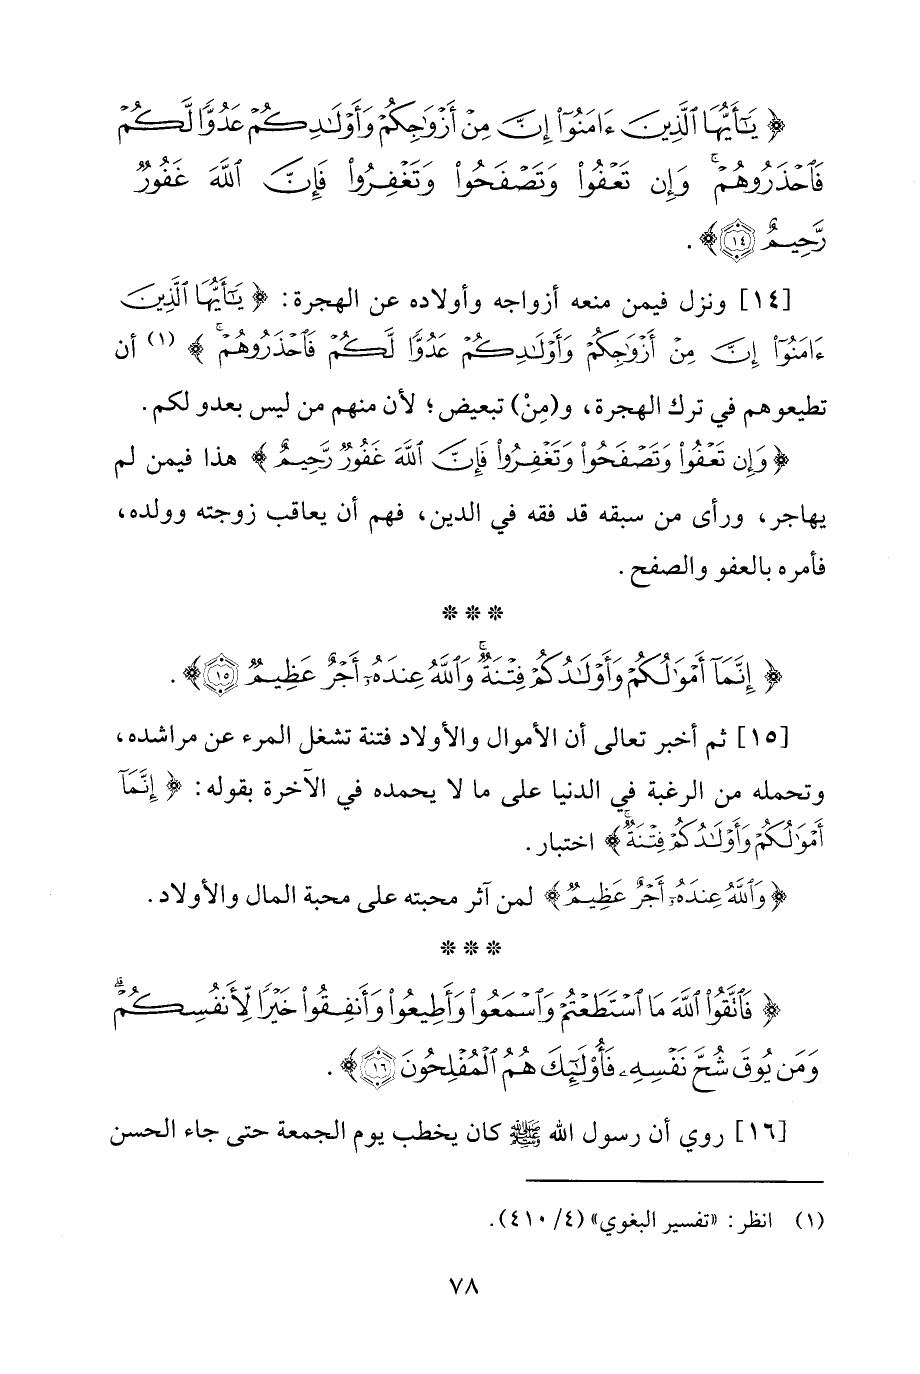 ﴿ يَٰٓأَيُّهَا ٱلَّذِينَ ءَامَنُوٓا۟ إِنَّ مِنْ أَزْوَٰجِكُمْ وَأَوْلَٰدِكُمْ عَدُوًّا لَّكُمْ
فَٱحْذَرُوهُمْ ۚ وَإِن تَعْفُوا۟ وَتَصْفَحُوا۟ وَتَغْفِرُوا۟ فَإِنَّ ٱللَّهَ غَفُورٌ
رَّحِيمٌ ١٤﴾ .
[١٤] ونزل فيمن منعه أزواجه وأولاده عن الهجرة: ﴿ يَٰٓأَيُّهَا ٱلَّذِينَ
ءَامَنُوٓا۟ إِنَّ مِنْ أَزْوَٰجِكُمْ وَأَوْلَٰدِكُمْ عَدُوًّا لَّكُمْ فَٱحْذَرُوهُمْ ۚ ﴾ (١) أن
تطيعوهم في ترك الهجرة، و(مِنْ) تبعيض؛ لأن منهم من ليس بعدو لكم.
﴿ وَإِن تَعْفُوا۟ وَتَصْفَحُوا۟ وَتَغْفِرُوا۟ فَإِنَّ ٱللَّهَ غَفُورٌ رَّحِيمٌ ﴾ هذا فيمن لم
يهاجر، ورأى من سبقه قد فقه في الدين، فهم أن يعاقب زوجته وولده،
فأمره بالعفو والصفح.
* * *
﴿ إِنَّمَآ أَمْوَٰلُكُمْ وَأَوْلَٰدُكُمْ فِتْنَةٌ ۚ وَٱللَّهُ عِندَهُۥٓ أَجْرٌ عَظِيمٌ ١٥﴾ .
[١٥] ثم أخبر تعالى أن الأموال والأولاد فتنة تشغل المرء عن مراشده،
وتحمله من الرغبة في الدنيا على ما لا يحمده في الآخرة بقوله: ﴿ إِنَّمَآ
أَمْوَٰلُكُمْ وَأَوْلَٰدُكُمْ فِتْنَةٌ ۚ﴾ اختبار.
﴿ وَٱللَّهُ عِندَهُۥٓ أَجْرٌ عَظِيمٌ ﴾ لمن آثر محبته على محبة المال والأولاد.
* * *
﴿ فَٱتَّقُوا۟ ٱللَّهَ مَا ٱسْتَطَعْتُمْ وَٱسْمَعُوا۟ وَأَطِيعُوا۟ وَأَنفِقُوا۟ خَيْرًا لِّأَنفُسِكُمْ ۗ
وَمَن يُوقَ شُحَّ نَفْسِهِۦ فَأُو۟لَٰٓئِكَ هُمُ ٱلْمُفْلِحُونَ ١٦﴾ .
[١٦] روي أن رسول الله ﷺ كان يخطب يوم الجمعة حتى جاء الحسن
(١) انظر: «تفسير البغوي» (٤/ ٤١٠).
٧٨